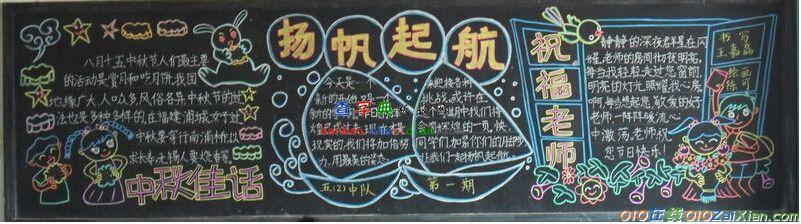 八月十五中秋节人们最主要
的活动是赏月和吃月饼,我国
地缘广大,人口众多,风俗各异,中秋节的过
法也是多种多样的,在福建浦城,女子过
中秋要穿行南浦桥,以
求长寿
中秋佳话
扬帆起航
今天是一
新的
现实的,我们将加倍努
力,用最美的姿态
来迎接各种
挑战,或许在
这个
同学们,加紧你们的脚步
让我们一起扬帆起航。
五(2)中队
第一期
查字典
祝福老师
静静的深夜群星在闪
耀,老师的房间彻夜明亮,
每当我轻轻走过您窗前,
明亮的灯光照耀我心房
啊,每当想起您,敬爱的好
老师一阵阵暖流心
中激荡,老师祝
您节日快乐!
书写
王嘉磊
绘画
陈可
010在线010ZaiXian.com